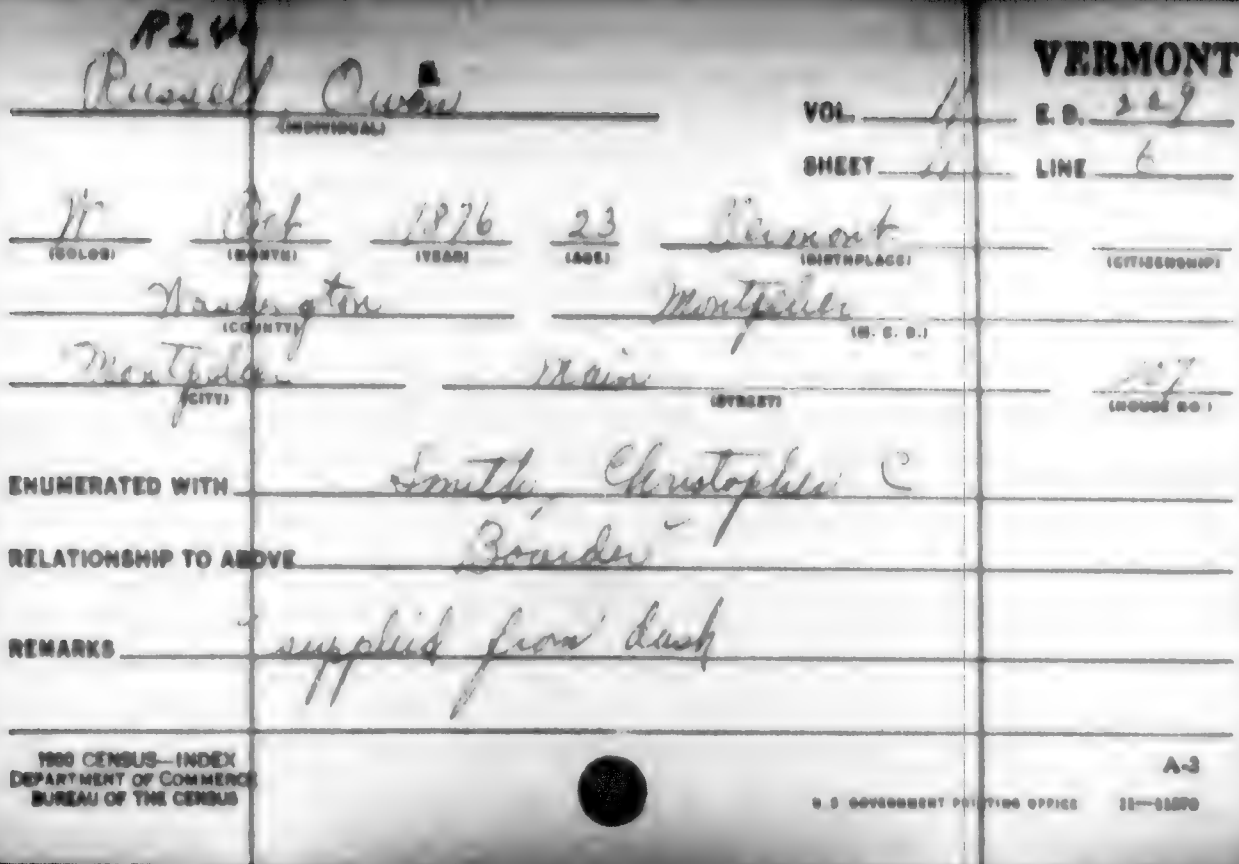 R240
VERMONT
Russell, Owen
(INDIVIDUAL)
VOL. E. D. 229
SHEET LINE 6
W Oct 1876 23 Vermont
(COLOR) (MONTH) (YEAR) (AGE) (BIRTHPLACE) (CITIZENSHIP)
Washington Montpelier
(COUNTY) (M. C. D.)
Montpelier Main
(CITY) (STREET) (HOUSE NO.)
ENUMERATED WITH Smith, Christopher C
RELATIONSHIP TO ABOVE Boarder
REMARKS " supplied from dash
1900 CENSUS—INDEX
DEPARTMENT OF COMMERCE
BUREAU OF THE CENSUS
A-3
U.S. GOVERNMENT PRINTING OFFICE